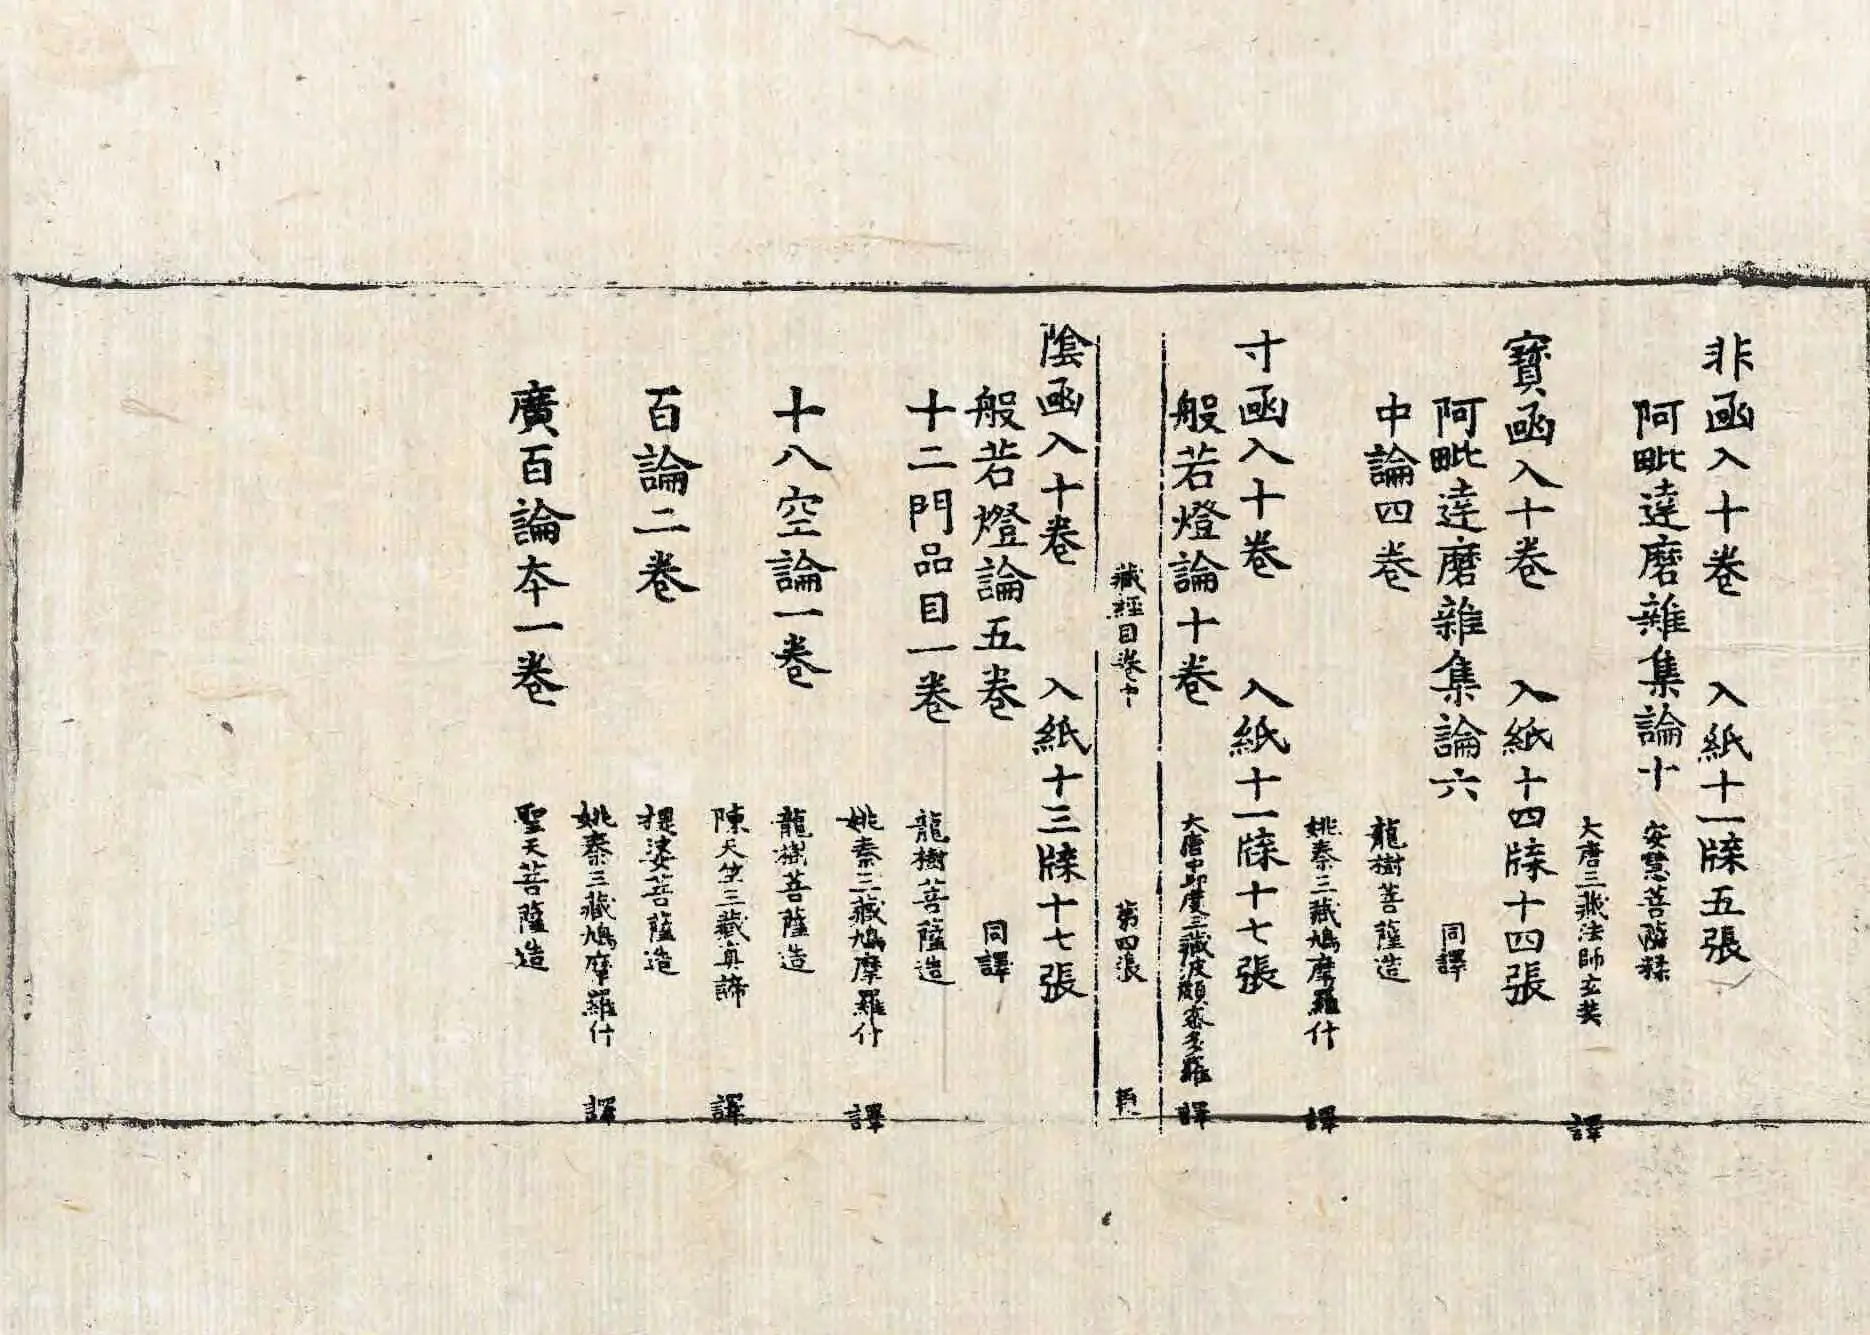 非函入十卷　入紙十一牒五張
阿毗達磨雜集論十　安慧菩薩糅
大唐三藏法師玄奘　譯
寶函入十卷　入紙十四牒十四張
阿毗達磨雜集論六　同譯
中論四卷　龍樹菩薩造
姚秦三藏鳩摩羅什　譯
寸函入十卷　入紙十一牒十七張
般若燈論十卷　大唐中印度三藏波頗蜜多羅　譯
藏經目卷中　第四張
陰函入十卷　入紙十三牒十七張
般若燈論五卷　同譯
十二門品目一卷　龍樹菩薩造
姚秦三藏鳩摩羅什　譯
十八空論一卷　龍樹菩薩造
陳天竺三藏真諦　譯
百論二卷　提婆菩薩造
姚秦三藏鳩摩羅什　譯
廣百論本一卷　聖天菩薩造